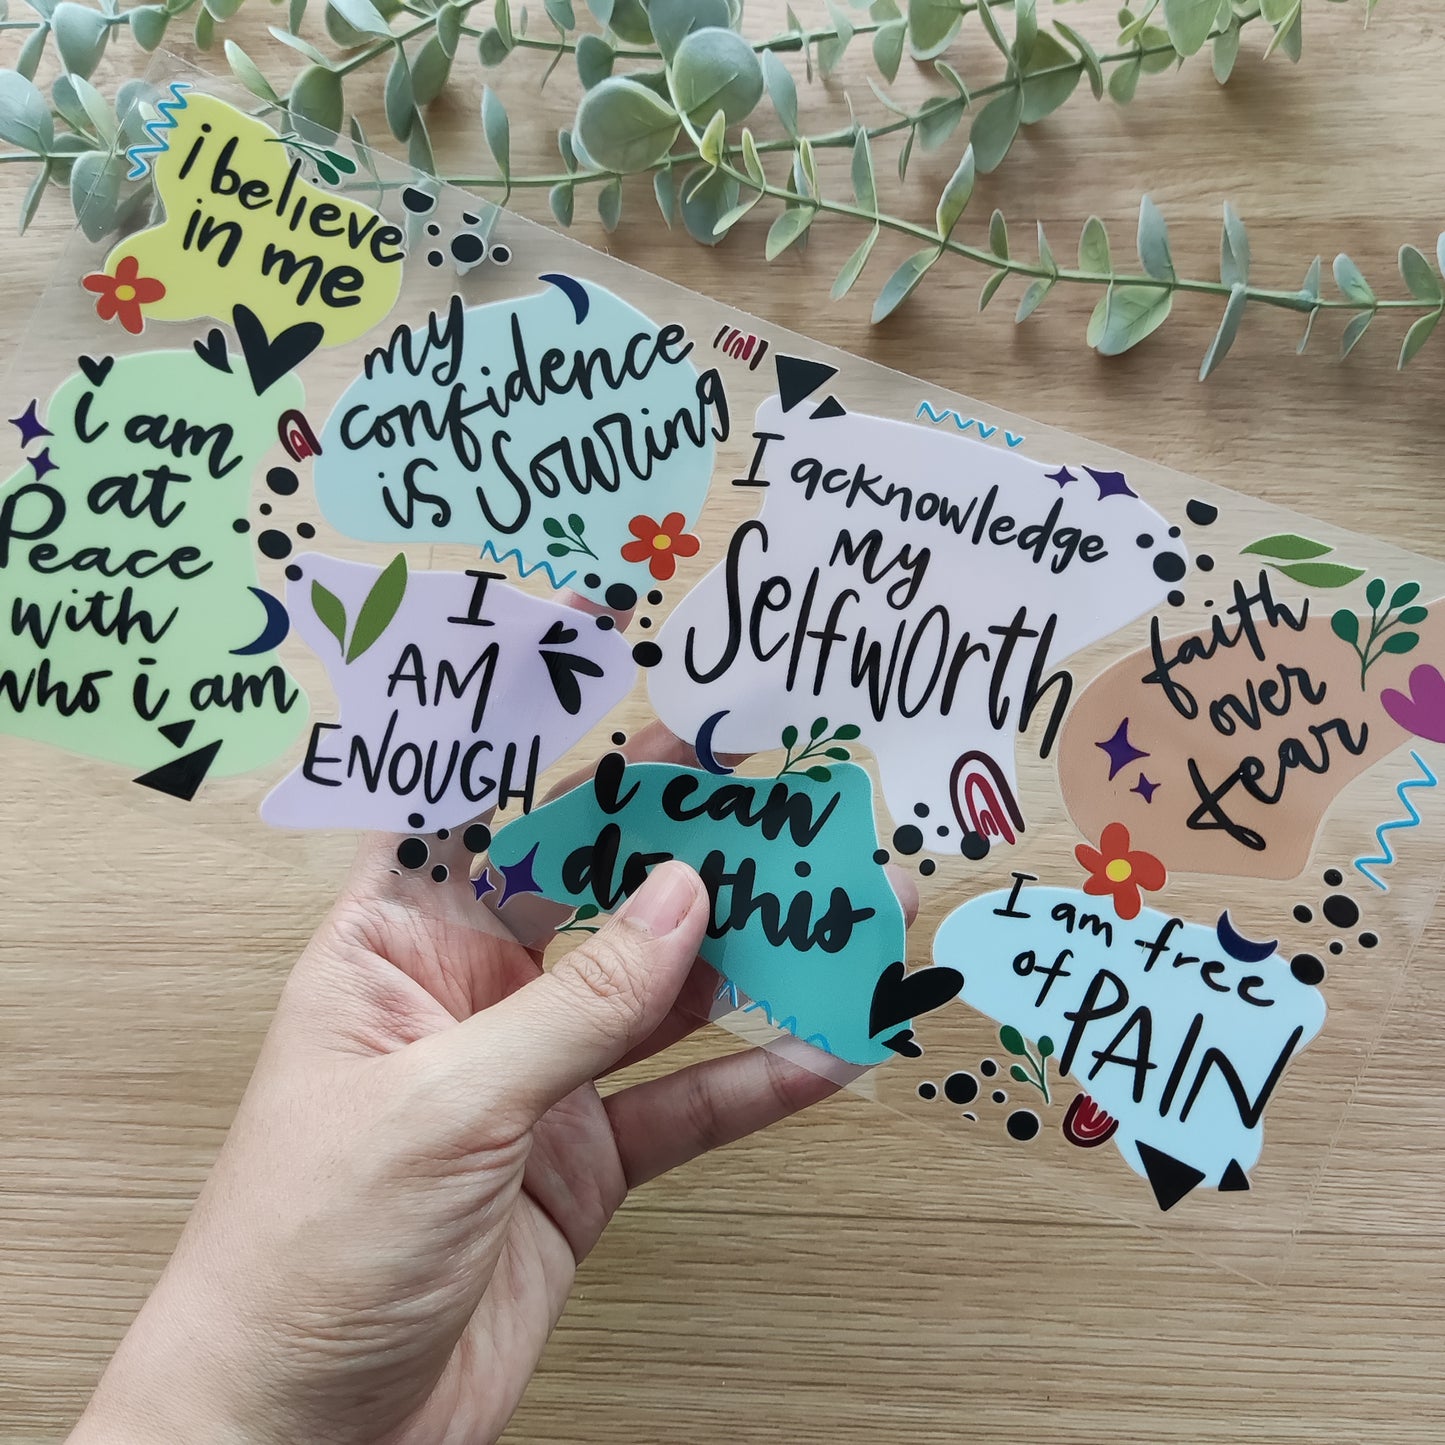 i believe
in me
my
confidence
is Souring
i am
at
Peace
with
who i am
I
AM
ENOUGH
I acknowledge
my
Selfworth
faith
over
fear
i can
do this
I am free
of PAIN